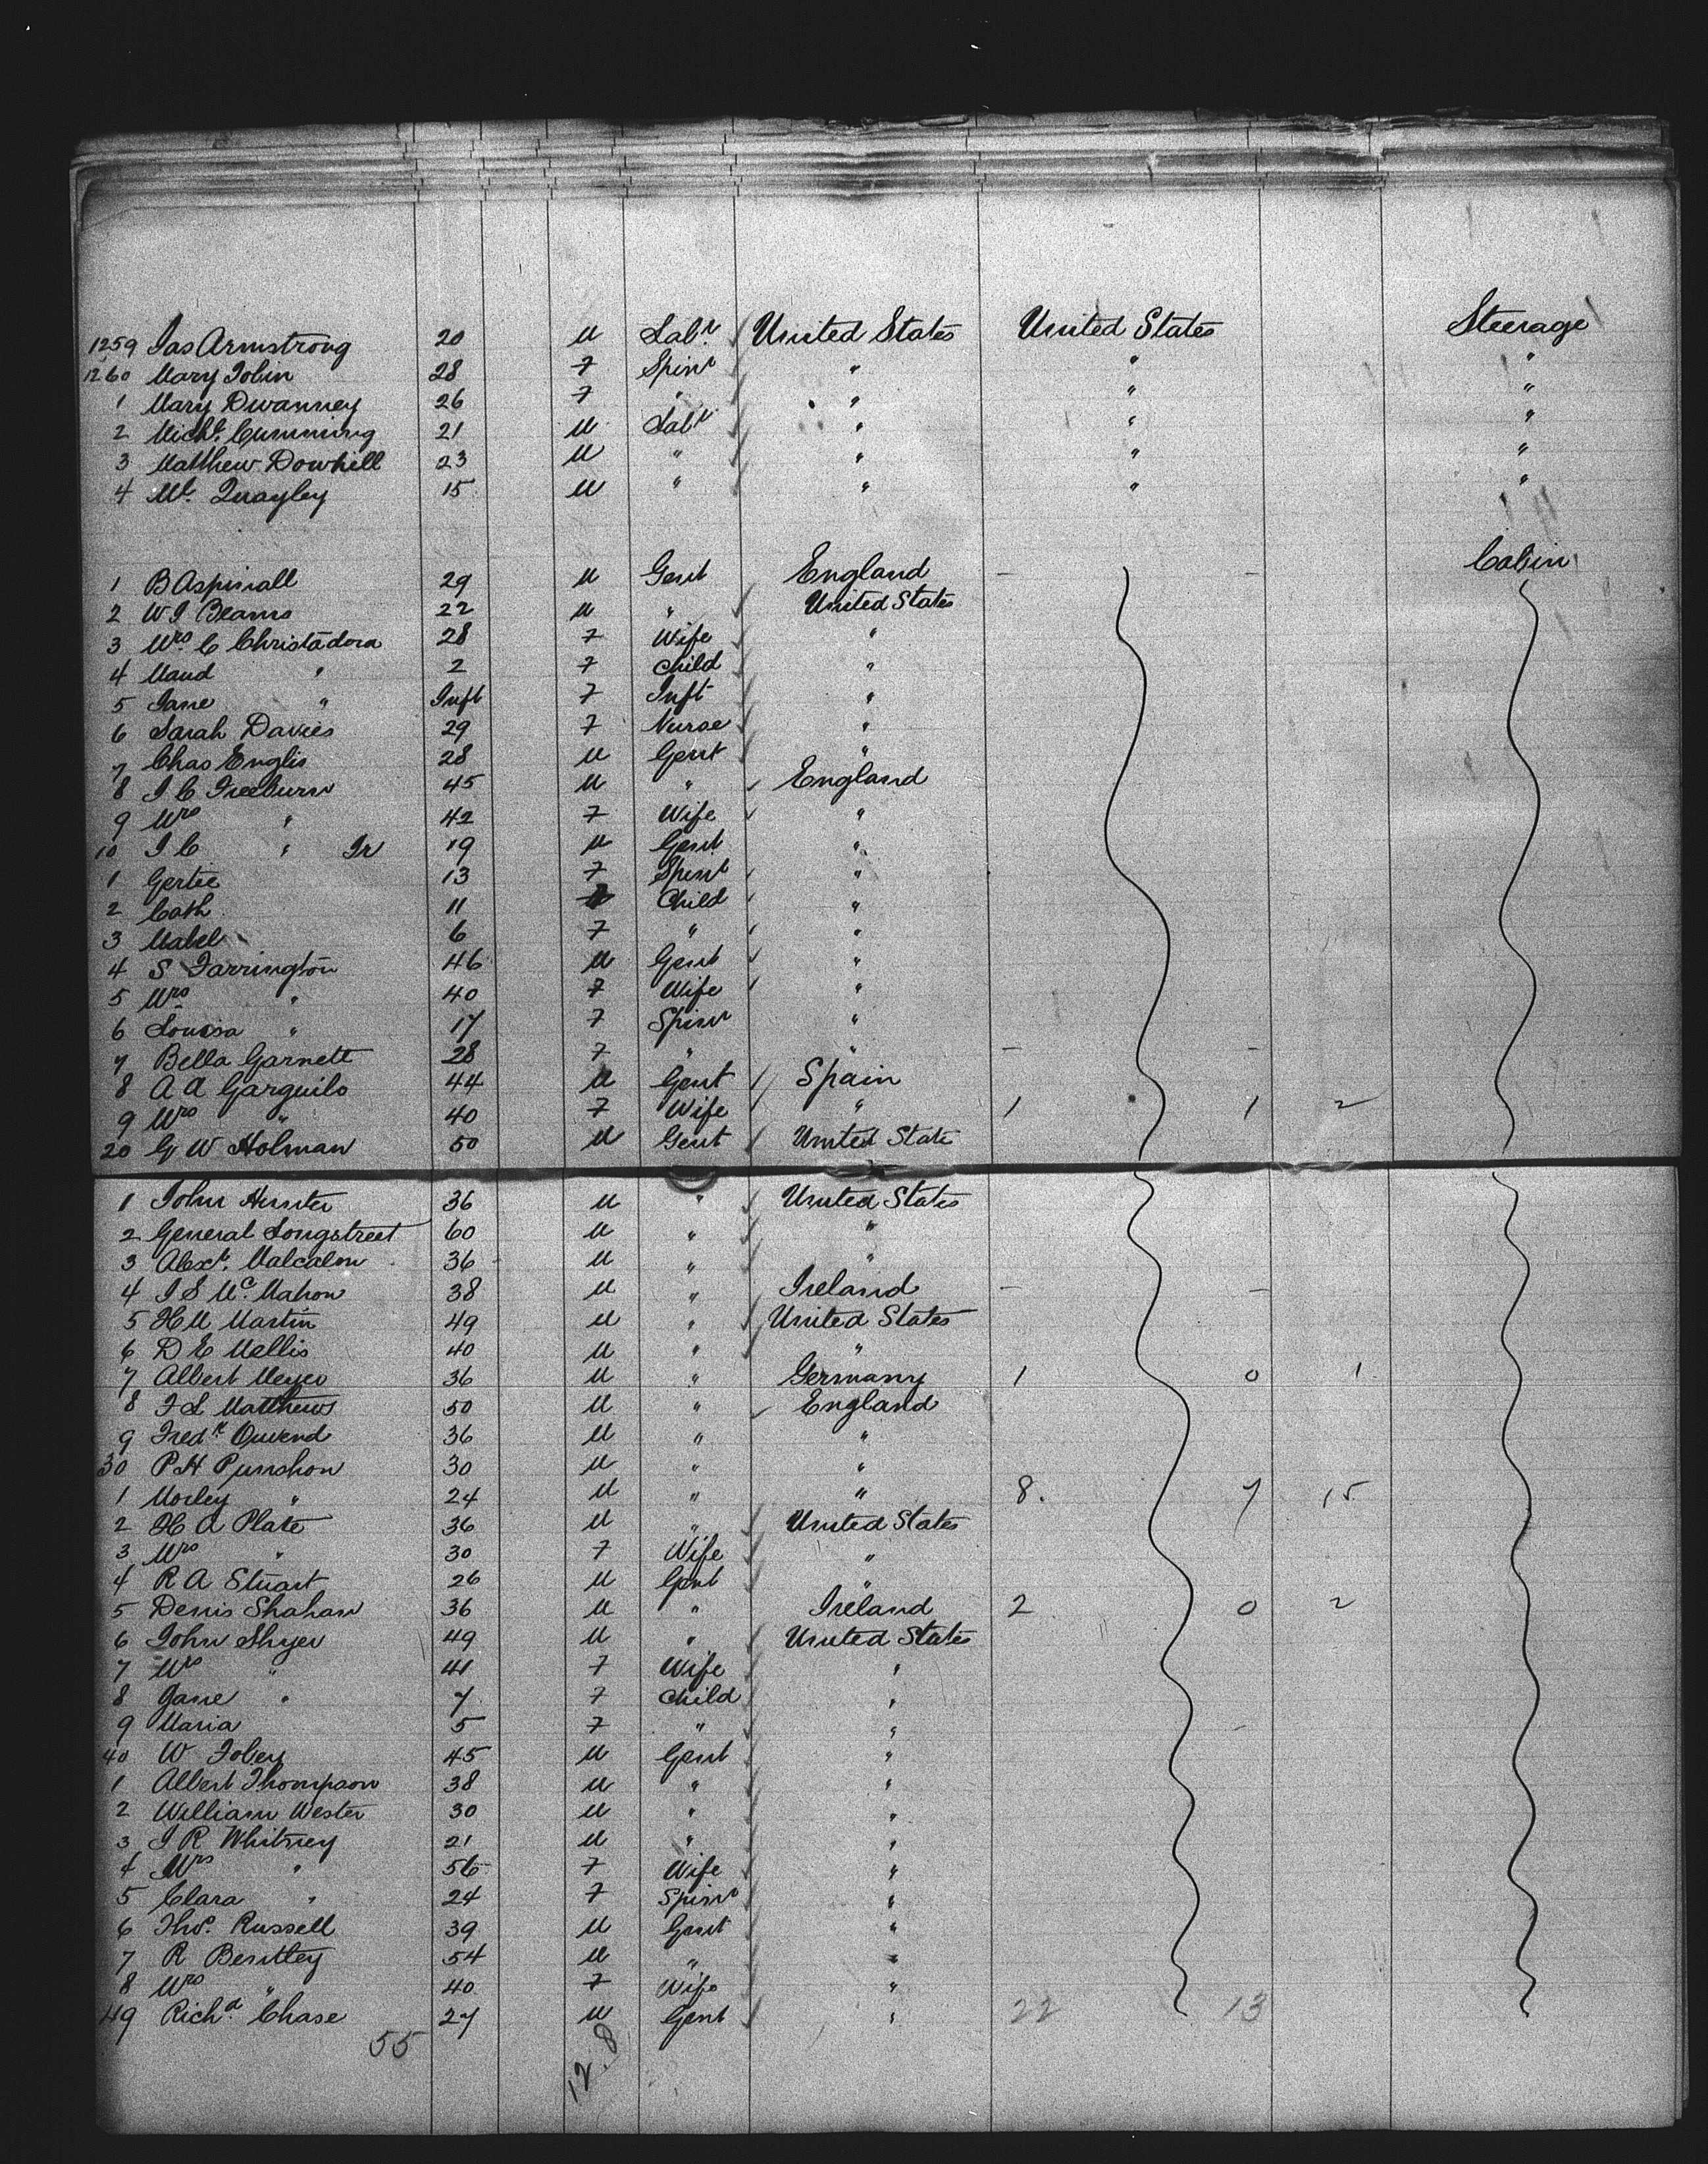 1259 Jas Armstrong 20 M Labr United States United States Steerage
1260 Mary Tobin 28 F Spinr " " "
1 Mary Dwanney 26 F " " " "
2 Michl Cumming 21 M Labr " " "
3 Matthew Dowhill 23 M " " " "
4 Ml Quayley 15 M " " " "
Cabin
1 B Aspinall 29 M Gent England — —
2 W J Beams 22 M " United States
3 Mrs C Christadora 28 F Wife "
4 Maud " 2 F Child "
5 Jane " Inft F Inft "
6 Sarah Davies 29 F Nurse "
7 Chas Englis 28 M Gent "
8 J C Freeburn 45 M " England
9 Mrs " 42 F Wife "
10 J C " Jr 19 M Gent "
1 Gertie 13 F Spinr "
2 Cath 11 Child "
3 Mabel 6 F " "
4 S Farrington 46 M Gent "
5 Mrs " 40 F Wife "
6 Louisa " 17 F Spinr "
7 Bella Garnett 28 F " " — —
8 A A Garguilo 44 M Gent Spain
9 Mrs " 40 F Wife " 1 1 2
20 G W Holman 50 M Gent United State
1 John Hunter 36 M " United States
2 General Longstreet 60 M " "
3 Alexr Malcalm 36 M " "
4 J S McMahon 38 M " Ireland — —
5 H M Martin 49 M " United States
6 D E Mellis 40 M " "
7 Albert Meyer 36 M " Germany 1 0 1
8 F L Matthews 50 M " England
9 Fredk 36 M " "
30 P H Punshon 30 M " "
1 Morley " 24 M " " 8. 7 15
2 H A Plate 36 M " United States
3 Mrs " 30 F Wife "
4 R A Stuart 26 M Gent "
5 Denis Shahan 36 M " Ireland 2 0 2
6 John Shyer 49 M " United States
7 Mrs " 41 F Wife "
8 Jane " 7 F Child "
9 Maria 5 F " "
40 W Tobey 45 M Gent "
1 Albert Thompson 38 M " "
2 William Wester 30 M " "
3 J R Whitney 21 M " "
4 Mrs " 56 F Wife "
5 Clara " 24 F Spinr "
6 Thos Russell 39 M Gent "
7 R Bentley 54 M " "
8 Mrs " 40 F Wife "
49 Richd Chase 27 M Gent " 22 13
55
12.8